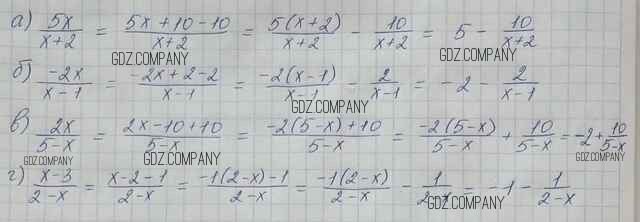 а) 5x/(x+2) = (5x+10-10)/(x+2) = 5(x+2)/(x+2) - 10/(x+2) = 5 - 10/(x+2)
GDZ.COMPANY GDZ.COMPANY
б) -2x/(x-1) = (-2x+2-2)/(x-1) = -2(x-1)/(x-1) - 2/(x-1) = -2 - 2/(x-1)
GDZ.COMPANY
в) 2x/(5-x) = (2x-10+10)/(5-x) = (-2(5-x)+10)/(5-x) = -2(5-x)/(5-x) + 10/(5-x) = -2 + 10/(5-x)
GDZ.COMPANY GDZ.COMPANY GDZ.COMPANY
г) (x-3)/(2-x) = (x-2-1)/(2-x) = (-1(2-x)-1)/(2-x) = -1(2-x)/(2-x) - 1/(2-x) = -1 - 1/(2-x)
GDZ.COMPANY